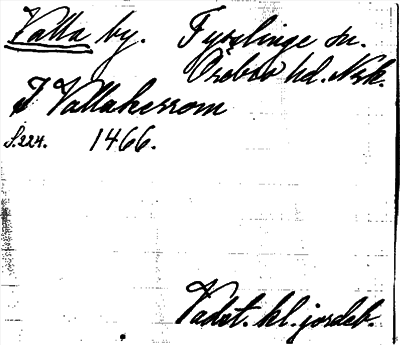 Valla by. Fyrslinge sn.
Örebro hd. Nrk.
I Vallakerrom
S. 224. 1466.
Vadst. kl. jordeb.